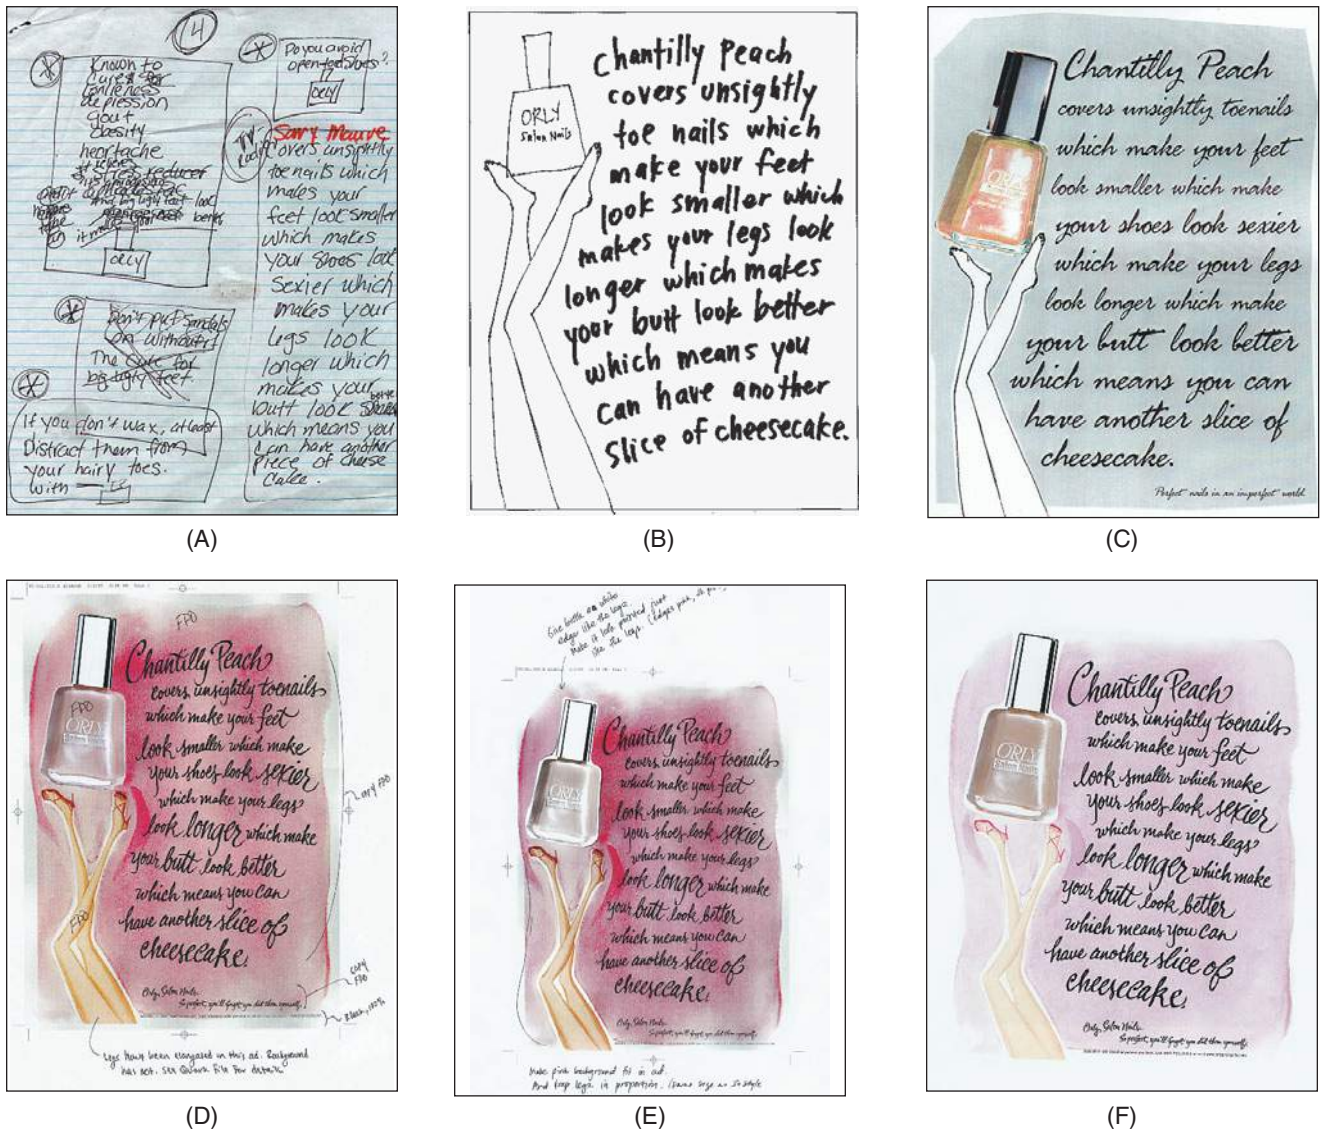 4
Known to
Cure
for
lonliness
depression
gout
obesity
heartache
stress reducer
ORLY
Do you avoid
open-toed shoes?
ORLY
Sorry Mauve
Covers unsightly
toe nails which
makes your
feet look smaller
which makes
your shoes look
Sexier which
makes your
legs look
longer which
makes your
butt look
which means you
can have another
Piece of cheese
Cake.
Don't put sandals
on without it
The Cure for
big ugly feet.
If you don't wax, at least
Distract them from
your hairy toes.
with
(A)
ORLY
Salon Nails
Chantilly Peach
covers unsightly
toe nails which
make your feet
look smaller which
makes your legs look
longer which makes
your butt look better
which means you
can have another
slice of cheesecake.
(B)
ORLY
Chantilly Peach
covers unsightly toenails
which make your feet
look smaller which make
your shoes look sexier
which make your legs
look longer which make
your butt look better
which means you can
have another slice of
cheesecake.
Perfect nails in an imperfect world.
(C)
FPO
FPO
ORLY
Chantilly Peach
covers unsightly toenails
which make your feet
look smaller which make
your shoes look sexier
which make your legs
look longer which make
your butt look better
which means you can
have another slice of
cheesecake.
FPO
Orly Salon Nails.
So perfect, you'll forget you did them yourself.
copy FPO
copy
FPO
Black, 100%
Legs have been elongated in this ad. Background
has not. See Quark File for details
(D)
Give bottle a white
edge like the legs.
Make it look painted just
like the legs.
ORLY
Chantilly Peach
covers unsightly toenails
which make your feet
look smaller which make
your shoes look sexier
which make your legs
look longer which make
your butt look better
which means you can
have another slice of
cheesecake.
Orly Salon Nails.
So perfect, you'll forget you did them yourself.
Make pink background fit in ad.
And keep legs in proportion.
(E)
ORLY
Salon Nails
Chantilly Peach
covers unsightly toenails
which make your feet
look smaller which make
your shoes look sexier
which make your legs
look longer which make
your butt look better
which means you can
have another slice of
cheesecake.
Orly Salon Nails.
So perfect, you'll forget you did them yourself.
(F)